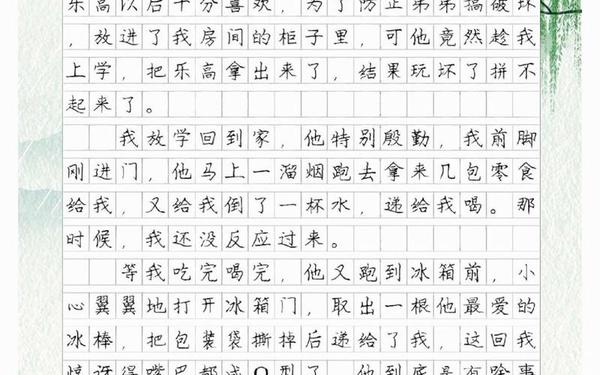 乐高以后十分喜欢，为了防止弟弟搞破坏
，放进了我房间的柜子里，可他竟然趁我
上学，把乐高拿出来了，结果玩坏了拼不
起来了。
我放学回到家，他特别殷勤，我前脚
刚进门，他马上一溜烟跑去拿来几包零食
给我，又给我倒了一杯水，递给我喝。那
时候，我还没反应过来。
等我吃完喝完，他又跑到冰箱前，小
心翼翼地打开冰箱门，取出一根他最爱的
冰棒，把包装袋撕掉后递给了我，这回我
惊讶得嘴巴都成O型了，他到底是有啥事